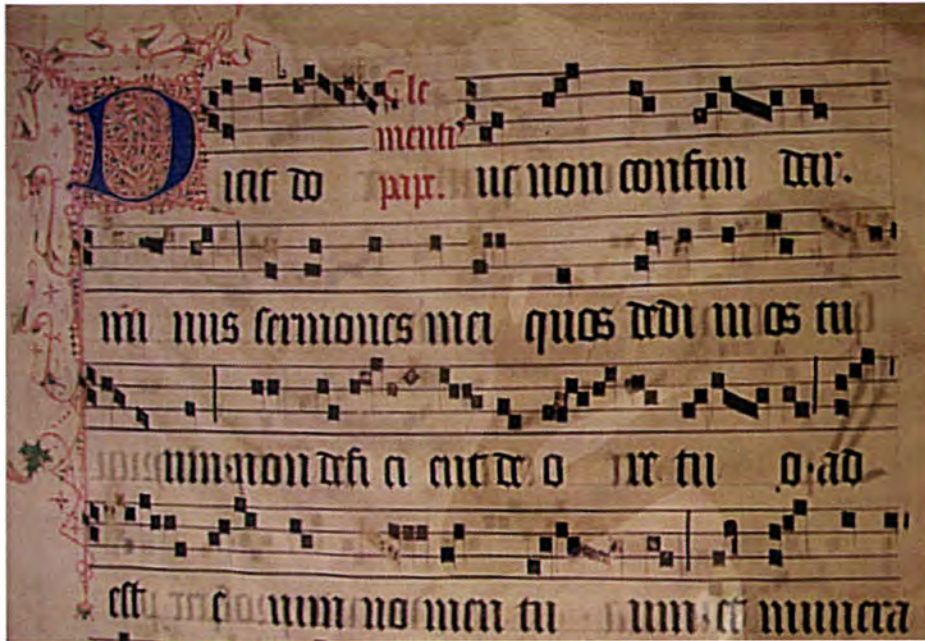 Dicit do
Cle
menti
pape.
ut non confun dar.
mi nus sermones mei quos dedi in os tu
um. non defi ci ent de o re tu o. ad
est e nim no men tu um. et munera